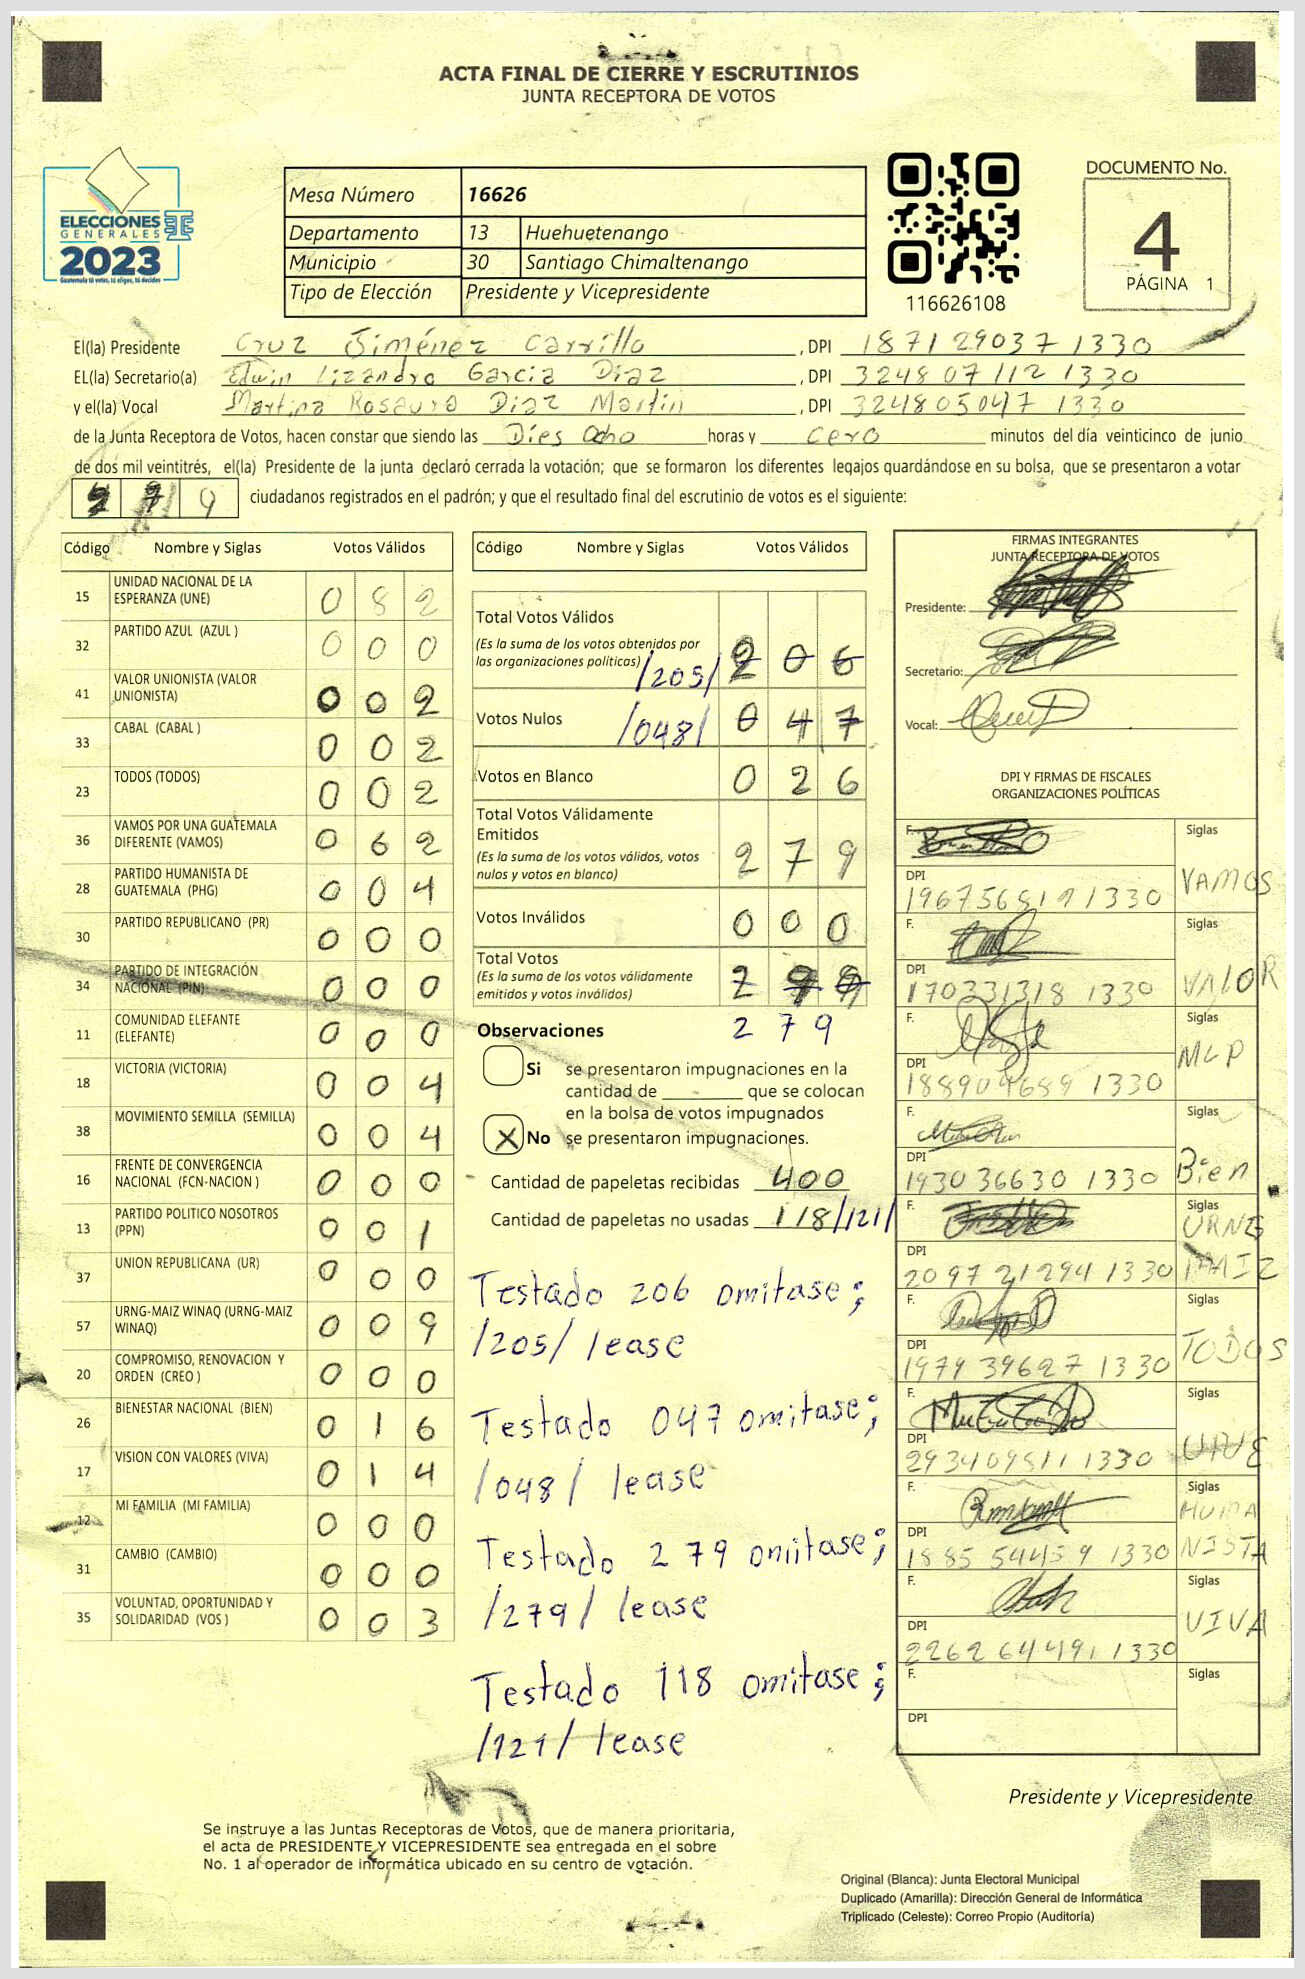 ACTA FINAL DE CIERRE Y ESCRUTINIOS
JUNTA RECEPTORA DE VOTOS
ELECCIONES
GENERALES
2023
Guatemala tú votas, tú eliges, tú decides
Mesa Número 16626
Departamento 13 Huehuetenango
Municipio 30 Santiago Chimaltenango
Tipo de Elección Presidente y Vicepresidente
116626108
DOCUMENTO No.
4
PÁGINA 1
El(la) Presidente Cruz Jiménez Carrillo, DPI 187129037 1330
EL(la) Secretario(a) Edwin Lizandro Garcia Diaz, DPI 324807112 1330
y el(la) Vocal Martina Rosaura Diaz Martin, DPI 324805047 1330
de la Junta Receptora de Votos, hacen constar que siendo las Dies Ocho horas y cero minutos del día veinticinco de junio
de dos mil veintitrés, el(la) Presidente de la junta declaró cerrada la votación; que se formaron los diferentes legajos guardándose en su bolsa, que se presentaron a votar
279 ciudadanos registrados en el padrón; y que el resultado final del escrutinio de votos es el siguiente:
Código Nombre y Siglas Votos Válidos
15 UNIDAD NACIONAL DE LA ESPERANZA (UNE) 0 8 2
32 PARTIDO AZUL (AZUL ) 0 0 0
41 VALOR UNIONISTA (VALOR UNIONISTA) 0 0 2
33 CABAL (CABAL ) 0 0 2
23 TODOS (TODOS) 0 0 2
36 VAMOS POR UNA GUATEMALA DIFERENTE (VAMOS) 0 6 2
28 PARTIDO HUMANISTA DE GUATEMALA (PHG) 0 0 4
30 PARTIDO REPUBLICANO (PR) 0 0 0
34 PARTIDO DE INTEGRACIÓN NACIONAL (PIN) 0 0 0
11 COMUNIDAD ELEFANTE (ELEFANTE) 0 0 0
18 VICTORIA (VICTORIA) 0 0 4
38 MOVIMIENTO SEMILLA (SEMILLA) 0 0 4
16 FRENTE DE CONVERGENCIA NACIONAL (FCN-NACION ) 0 0 0
13 PARTIDO POLITICO NOSOTROS (PPN) 0 0 1
37 UNION REPUBLICANA (UR) 0 0 0
57 URNG-MAIZ WINAQ (URNG-MAIZ WINAQ) 0 0 9
20 COMPROMISO, RENOVACION Y ORDEN (CREO ) 0 0 0
26 BIENESTAR NACIONAL (BIEN) 0 1 6
17 VISION CON VALORES (VIVA) 0 1 4
12 MI FAMILIA (MI FAMILIA) 0 0 0
31 CAMBIO (CAMBIO) 0 0 0
35 VOLUNTAD, OPORTUNIDAD Y SOLIDARIDAD (VOS ) 0 0 3
Código Nombre y Siglas Votos Válidos
Total Votos Válidos
(Es la suma de los votos obtenidos por
las organizaciones políticas) /205/ 2 0 6
Votos Nulos /048/ 0 4 7
Votos en Blanco 0 2 6
Total Votos Válidamente
Emitidos
(Es la suma de los votos válidos, votos
nulos y votos en blanco) 2 7 9
Votos Inválidos 0 0 0
Total Votos
(Es la suma de los votos válidamente
emitidos y votos inválidos) 2
Observaciones 2 7 9
Si se presentaron impugnaciones en la
cantidad de ________ que se colocan
en la bolsa de votos impugnados
X No se presentaron impugnaciones.
Cantidad de papeletas recibidas 400
Cantidad de papeletas no usadas 118/121/
Testado 206 omitase;
/205/ lease
Testado 047 omitase;
/048/ lease
Testado 279 omitase;
/279/ lease
Testado 118 omitase;
/121/ lease
FIRMAS INTEGRANTES
JUNTA RECEPTORA DE VOTOS
Presidente:
Secretario:
Vocal:
DPI Y FIRMAS DE FISCALES
ORGANIZACIONES POLÍTICAS
F. Siglas
DPI VAMOS
1330
F. Siglas
DPI VALOR
170331318 1330
F. Siglas
DPI MLP
188904689 1330
F. Siglas
DPI Bien
1930 36630 1330
F. Siglas
URNG
DPI MAIZ
2097 21294 1330
F. Siglas
DPI TODOS
1979 39627 1330
F. Siglas
DPI UNE
1330
F. Siglas
HUMA
DPI NISTA
1885 54459 1330
F. Siglas
DPI VIVA
2262 64491 1330
F. Siglas
DPI
Presidente y Vicepresidente
Se instruye a las Juntas Receptoras de Votos, que de manera prioritaria,
el acta de PRESIDENTE Y VICEPRESIDENTE sea entregada en el sobre
No. 1 al operador de informática ubicado en su centro de votación.
Original (Blanca): Junta Electoral Municipal
Duplicado (Amarilla): Dirección General de Informática
Triplicado (Celeste): Correo Propio (Auditoría)